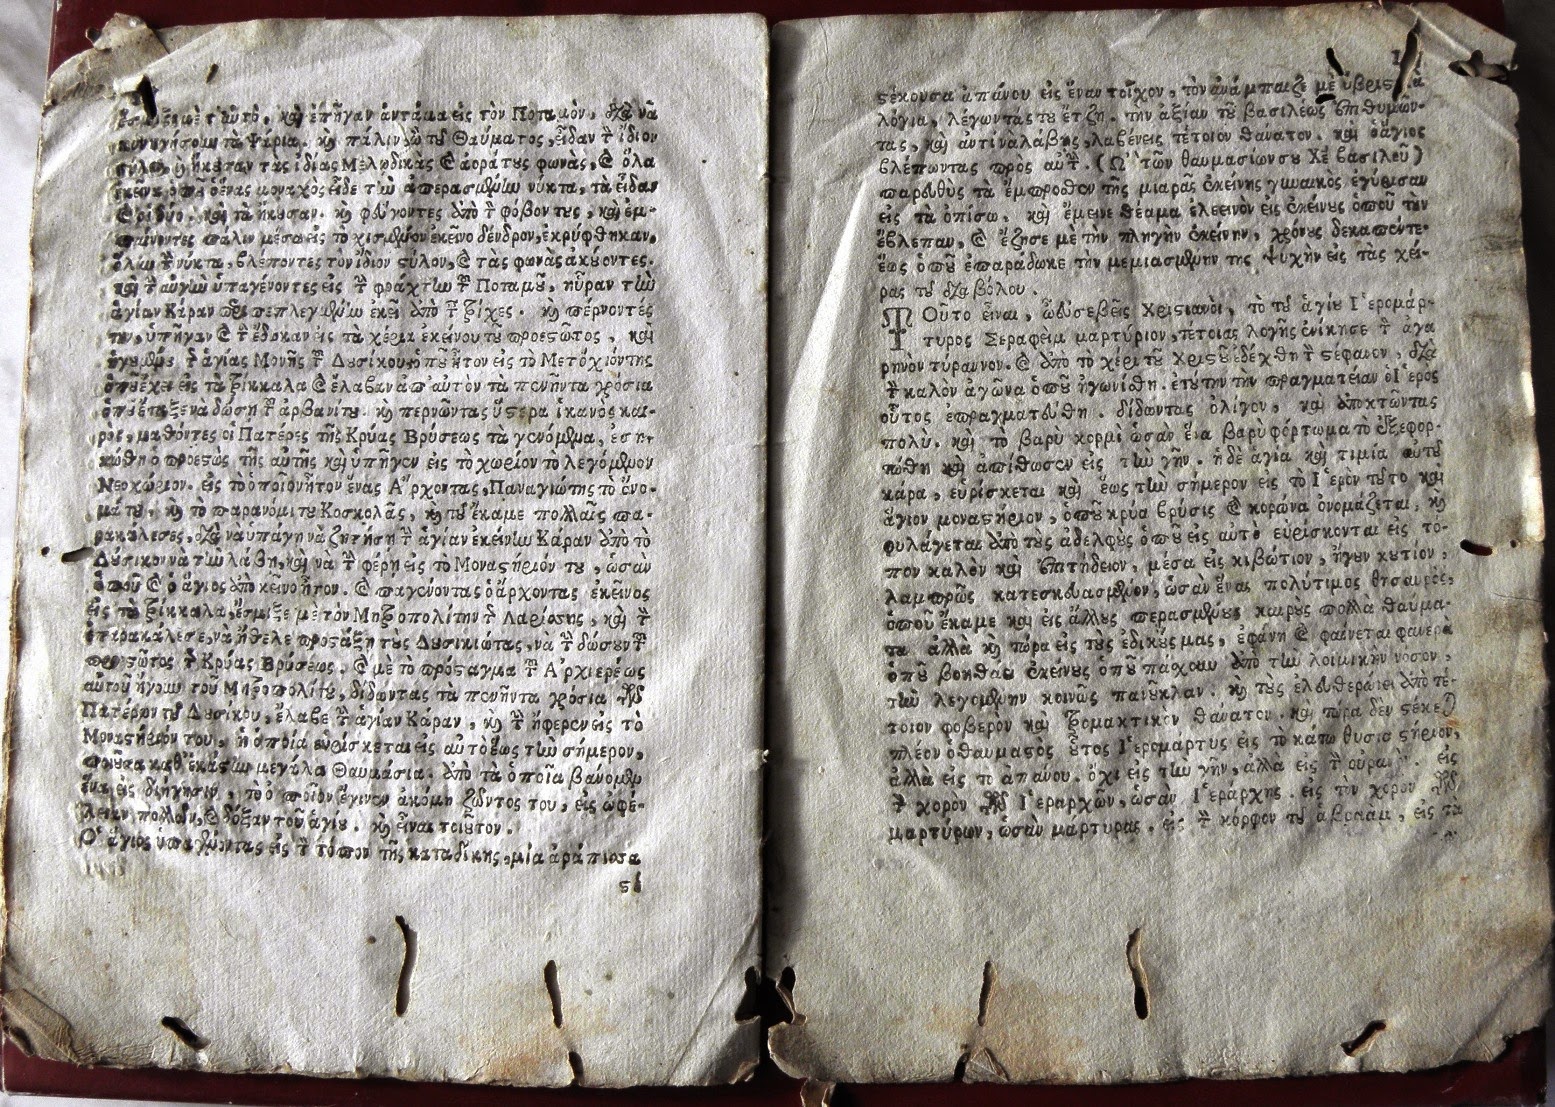 μετ' αὐτὸ, καὶ ἐπῆγαν ἀντάμα εἰς τὸν Ποταμὸν, διὰ νὰ
κυνηγήσουν τὰ Ψάρια. καὶ πάλιν ὢ τοῦ Θαύματος, εἶδαν τὸν ἴδιον
στύλον, ἢ ἤκουσαν τὰς ἰδίας Μελῳδικὰς καὶ ἀοράτους φωνάς, καὶ ὅλα
ἐκεῖνα ὁποῦ ὁ ἕνας μοναχὸς εἶδε τὴν ἀπερασμένην νύκτα, τὰ εἶδαν
καὶ οἱ δύο. καὶ τὰ ἤκουσαν. καὶ φεύγοντες ἀπὸ τὸν φόβον τους, καὶ ἐμ-
παίνοντες πάλιν μέσα εἰς τὸ χισμένον ἐκεῖνο δένδρον, ἐκρύφθηκαν,
ὅλην τὴν νύκτα, βλέποντες τὸν ἴδιον στύλον, καὶ τὰς φωνὰς ἀκούοντες.
καὶ τὴν αὐγὴν ὑπαγένοντες εἰς τὴν φράχτην τοῦ Ποταμοῦ, ηὗραν τὴν
ἁγίαν Κάραν περιπεπλεγμένην ἐκεῖ ἀπὸ τὲς τρίχες. καὶ πέρνοντές
την, ὑπῆγαν καὶ τὴν ἔδωκαν εἰς τὰ χέρια ἐκείνου τοῦ προεστῶτος, καὶ
ἡγουμένου τῆς ἁγίας Μονῆς τοῦ Δουσίκου, ὁποῦ ἦτον εἰς τὸ Μετόχιόν της
ὁποῦ ἔχει εἰς τὰ Τρίκκαλα καὶ ἔλαβαν ἀπ' αὐτὸν τὰ πενῆντα γρόσια
ὁποῦ ἔταξε νὰ δώσῃ τοῦ ἀρβανίτου. καὶ περνῶντας ὕστερα ἱκανὸς και-
ρὸς, μαθόντες οἱ Πατέρες τῆς Κρύας Βρύσεως τὰ γενόμενα, ἐση-
κώθη ὁ προεστὼς τῆς αὐτῆς καὶ ὑπῆγεν εἰς τὸ χωρίον τὸ λεγόμενον
Νεοχώριον. εἰς τὸ ὁποῖον ἦτον ἕνας Ἄρχοντας, Παναγιώτης τὸ ὄνο-
μά του, καὶ τὸ παρανόμι του Κοσκολᾶς, καὶ τοῦ ἔκαμε πολλαῖς πα-
ρακάλεσες, διὰ νὰ ὑπάγῃ νὰ ζητήσῃ τὴν ἁγίαν ἐκείνην Κάραν ἀπὸ τὸ
Δούσικον νὰ τὴν λάβῃ, καὶ νὰ τὴν φέρῃ εἰς τὸ Μοναστήριόν του, ὡσὰν
ὁποῦ καὶ ὁ ἅγιος ἀπὸ κεῖνο ἦτον. καὶ παγένοντας ὁ ἄρχοντας ἐκεῖνος
εἰς τὰ Τρίκκαλα, ἔσμιξε μὲ τὸν Μητροπολίτην τῆς Λαρίσης, καὶ τὸν
ἐπαρακάλεσε, νὰ ἤθελε προστάξῃ τοὺς Δουσικιώτας, νὰ τὴν δώσουν τοῦ
προεστῶτος τῆς Κρύας Βρύσεως. καὶ μὲ τὸ πρόσταγμα τοῦ Ἀρχιερέως
αὐτοῦ ἤγουν τοῦ Μητροπολίτου, δίδωντας τὰ πενῆντα γρόσια τῶν
Πατέρων τοῦ Δουσίκου, ἔλαβε τὴν ἁγίαν Κάραν, καὶ τὴν ἤφερεν εἰς τὸ
Μοναστήριόν του, ἡ ὁποία εὑρίσκεται εἰς αὐτὸ ἕως τὴν σήμερον,
ποιοῦσα καθ' ἑκάστην μεγάλα Θαυμάσια. ἀπὸ τὰ ὁποῖα βάνομεν
ἕνα εἰς διήγησιν, τὸ ὁποῖον ἔγινεν ἀκόμη ζῶντος του, εἰς ὠφέ-
λειαν πολλῶν, καὶ δόξαν τοῦ ἁγίου. καὶ εἶναι τοιοῦτον.
Ὁ ἅγιος ὑπαγένωντας εἰς τὸν τόπον τῆς καταδίκης, μία ἀράπισσα
στέ
στέκουσα ἀπάνου εἰς ἕναν τοῖχον, τὸν ἀνάμπαιζε μὲ ὑβριστικὰ
λόγια, λέγωντάς του ἔτζη. τὴν ἀξίαν τοῦ βασιλέως ἐπιθυμῶν-
τας, καὶ ἀντὶ νὰ λάβῃς, λαβένεις τέτοιον θάνατον. καὶ ὁ ἅγιος
βλέπωντας πρὸς αὐτήν. (Ὢ τῶν θαυμασίων σου Χριστὲ βασιλεῦ)
παρευθὺς τὰ ἔμπροσθεν τῆς μιαρᾶς ἐκείνης γυναικὸς ἐγύρισαν
εἰς τὰ ὀπίσω, καὶ ἔμεινε θέαμα ἐλεεινὸν εἰς ἐκείνους ὁποῦ τὴν
ἔβλεπαν, καὶ ἔζησε μὲ τὴν πληγὴν ἐκείνην, χρόνους δεκαπέντε.
ἕως ὁποῦ ἐπαράδωκε τὴν μεμιασμένην της ψυχὴν εἰς τὰς χεί-
ρας τοῦ διαβόλου.
Τοῦτο εἶναι, ὦ εὐσεβεῖς Χριστιανοὶ, τὸ τοῦ ἁγίου Ἱερομάρ-
τυρος Σεραφεὶμ μαρτύριον, τέτοιας λογῆς ἐνίκησε τὸν ἀγα
ρηνὸν τύραννον. καὶ ἀπὸ τὸ χέρι τοῦ Χριστοῦ ἐδέχθη τὸν στέφανον, διὰ
τὸν καλὸν ἀγῶνα ὁποῦ ἠγωνίσθη. ἐτούτην τὴν πραγματείαν ὁ Ἱερὸς
οὗτος ἐπραγματεύθη. δίδωντας ὀλίγον, καὶ ἀποκτῶντας
πολύ. καὶ τὸ βαρὺ κορμὶ ὡσὰν ἕνα βαρυφόρτωμα τὸ ἐξεφορ-
τώθη καὶ ἀπίθωσεν εἰς τὴν γῆν. ἡ δὲ ἁγία καὶ τιμία αὐτοῦ
κάρα, εὑρίσκεται καὶ ἕως τὴν σήμερον εἰς τὸ Ἱερὸν τοῦτο καὶ
ἅγιον μοναστήριον, ὁποῦ κρύα βρύσις καὶ κορώνα ὀνομάζεται, καὶ
φυλάγεται ἀπὸ τοὺς ἀδελφοὺς ὁποῦ εἰς αὐτὸ εὑρίσκονται εἰς τό-
πον καλὸν καὶ ἐπιτήδειον, μέσα εἰς κιβώτιον, ἤγουν κουτίον,
λαμπρῶς κατεσκευασμένον, ὡσὰν ἕνας πολύτιμος θησαυρὸς,
ὁποῦ ἔκαμε καὶ εἰς ἄλλους περασμένους καιροὺς πολλὰ θαύμα-
τα ἀλλὰ καὶ τώρα εἰς τοὺς ἐδικούς μας, ἐφάνη καὶ φαίνεται φανερὰ
ὁποῦ βοηθάει ἐκείνους ὁποῦ πάσχουν ἀπὸ τὴν λοιμικὴν νόσον,
τὴν λεγομένην κοινῶς πανοῦκλαν. καὶ τοὺς ἐλευθερώνει ἀπὸ τέ-
τοιον φοβερὸν καὶ τρομακτικὸν θάνατον. καὶ τώρα δὲν στέκει
πλέον ὁ θαυμαστὸς οὗτος Ἱερομάρτυς εἰς τὸ κάτω θυσιαστήριον,
ἀλλὰ εἰς τὸ ἀπάνου. ὄχι εἰς τὴν γῆν, ἀλλὰ εἰς τὸν οὐρανόν. εἰς
τὸν χορὸν τῶν Ἱεραρχῶν, ὡσὰν Ἱεράρχης. εἰς τὸν χορὸν τῶν
μαρτύρων, ὡσὰν μάρτυρας. εἰς τὸν κόρφον τοῦ ἀβραὰμ, εἰς τὰ